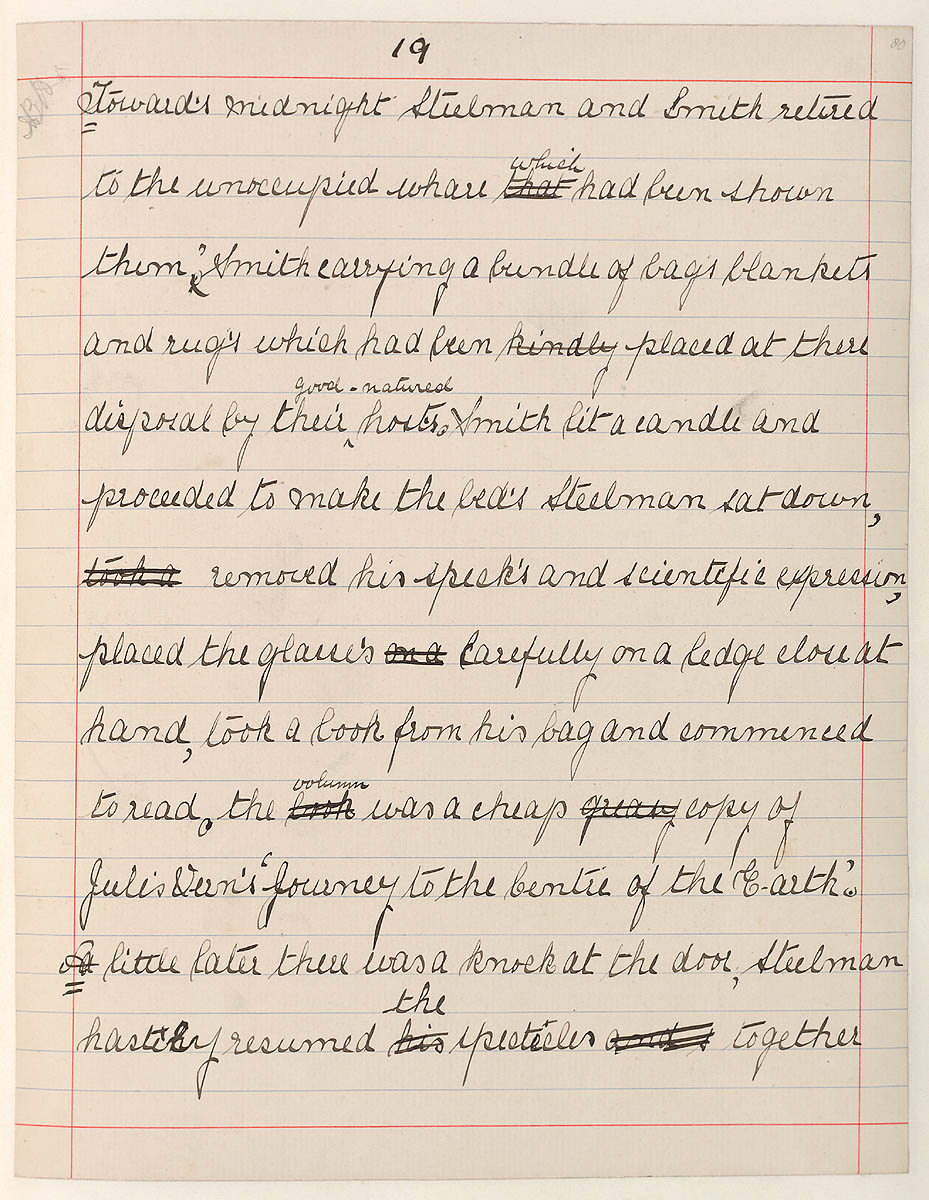 19
80
Toward's midnight Steelman and Smith retired
which
to the unoccupied whare that had been shown
them, Smith carrying a bundle of bag's blankets
and rug's which had been kindly placed at there
good-natured
disposal by their hosts. Smith lit a candle and
proceeded to make the bed's Steelman sat down,
took a removed his speck's and scientific expression,
placed the glasse's on a Carefully on a ledge close at
hand, took a book from his bag and commenced
volumn
to read, the book was a cheap greasy copy of
Julis Vern's "Journey to the Centre of the Earth".
A little later there was a knock at the door, Steelman
the
hastily resumed his specticles and s together